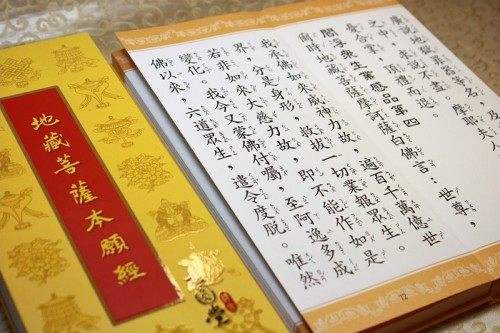 地藏菩薩本願經
廣說地獄罪器等名，及
之中，求說不盡。摩耶夫人
憂合掌，頂禮而退。
閻浮眾生業感品第四
爾時地藏菩薩摩訶薩白佛言：世尊，
我承佛如來威神力故，遍百千萬億世
界，分是身形，救拔一切業報眾生。
若非如來大慈力故，即不能作如是
變化。我今又蒙佛付囑，至阿逸多成
佛以來，六道眾生，遣令度脫。唯
12